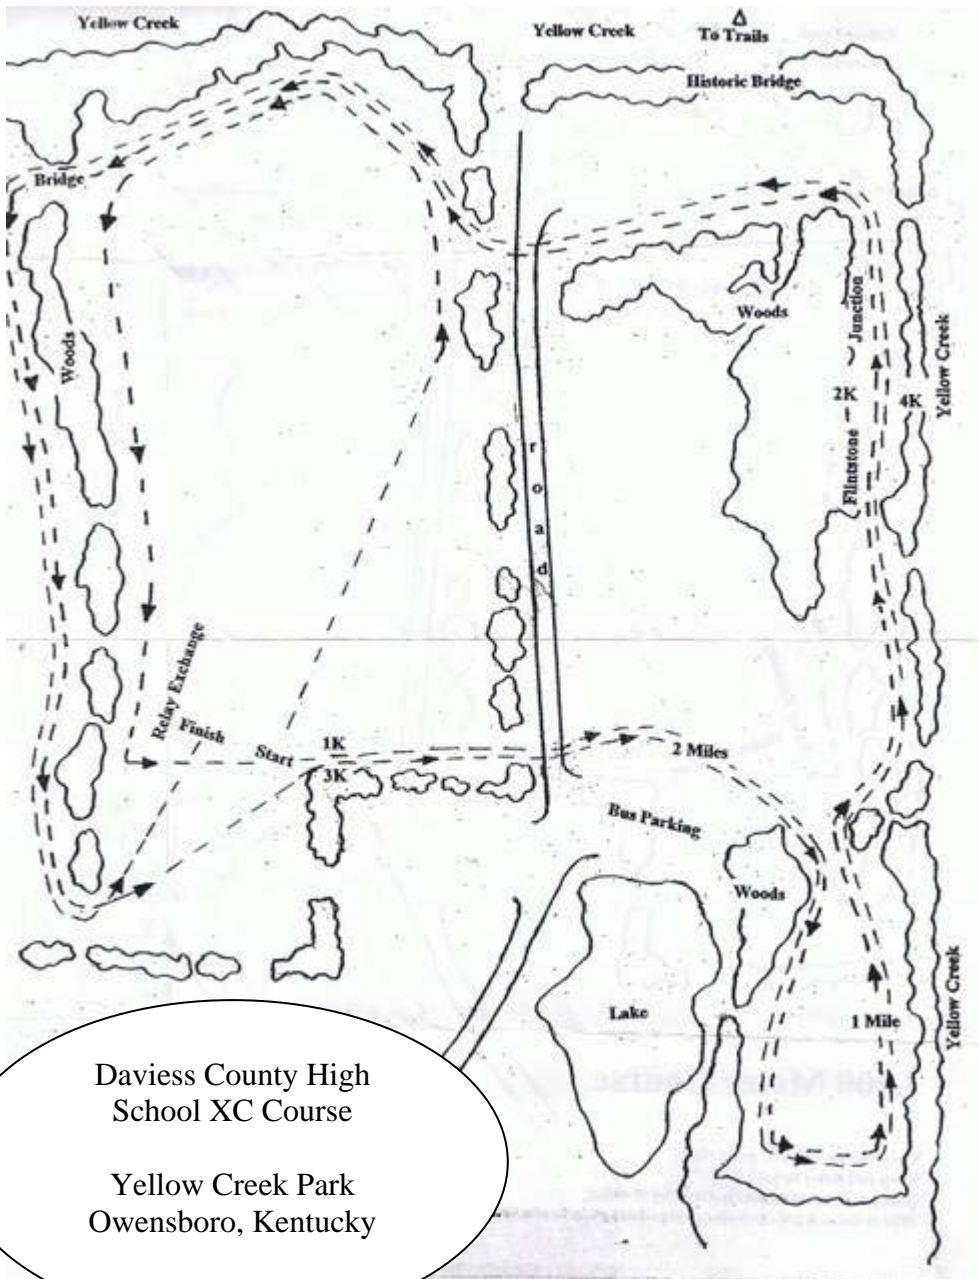 Yellow Creek
Yellow Creek
To Trails
Historic Bridge
Bridge
Woods
Woods
Junction
Flintstone
2K
4K
Yellow Creek
road
Relay Exchange
Finish
Start
1K
3K
2 Miles
Bus Parking
Woods
Lake
1 Mile
Yellow Creek
Daviess County High
School XC Course
Yellow Creek Park
Owensboro, Kentucky